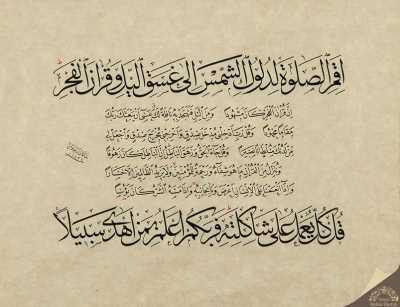 اقم الصلوة لدلوك الشمس الى غسق اليل وقران الفجر
ان قران الفجر كان مشهودا ومن اليل فتهجد به نافلة لك عسى ان يبعثك ربك
مقاما محمودا وقل رب ادخلني مدخل صدق واخرجني مخرج صدق واجعل لي
من لدنك سلطانا نصيرا وقل جاء الحق وزهق الباطل ان الباطل كان زهوقا
وننزل من القران ما هو شفاء ورحمة للمؤمنين ولا يزيد الظالمين الا خسارا
واذا انعمنا على الانسان اعرض ونا بجانبه واذا مسه الشر كان يؤسا
قل كل يعمل على شاكلته فربكم اعلم بمن هو اهدى سبيلا